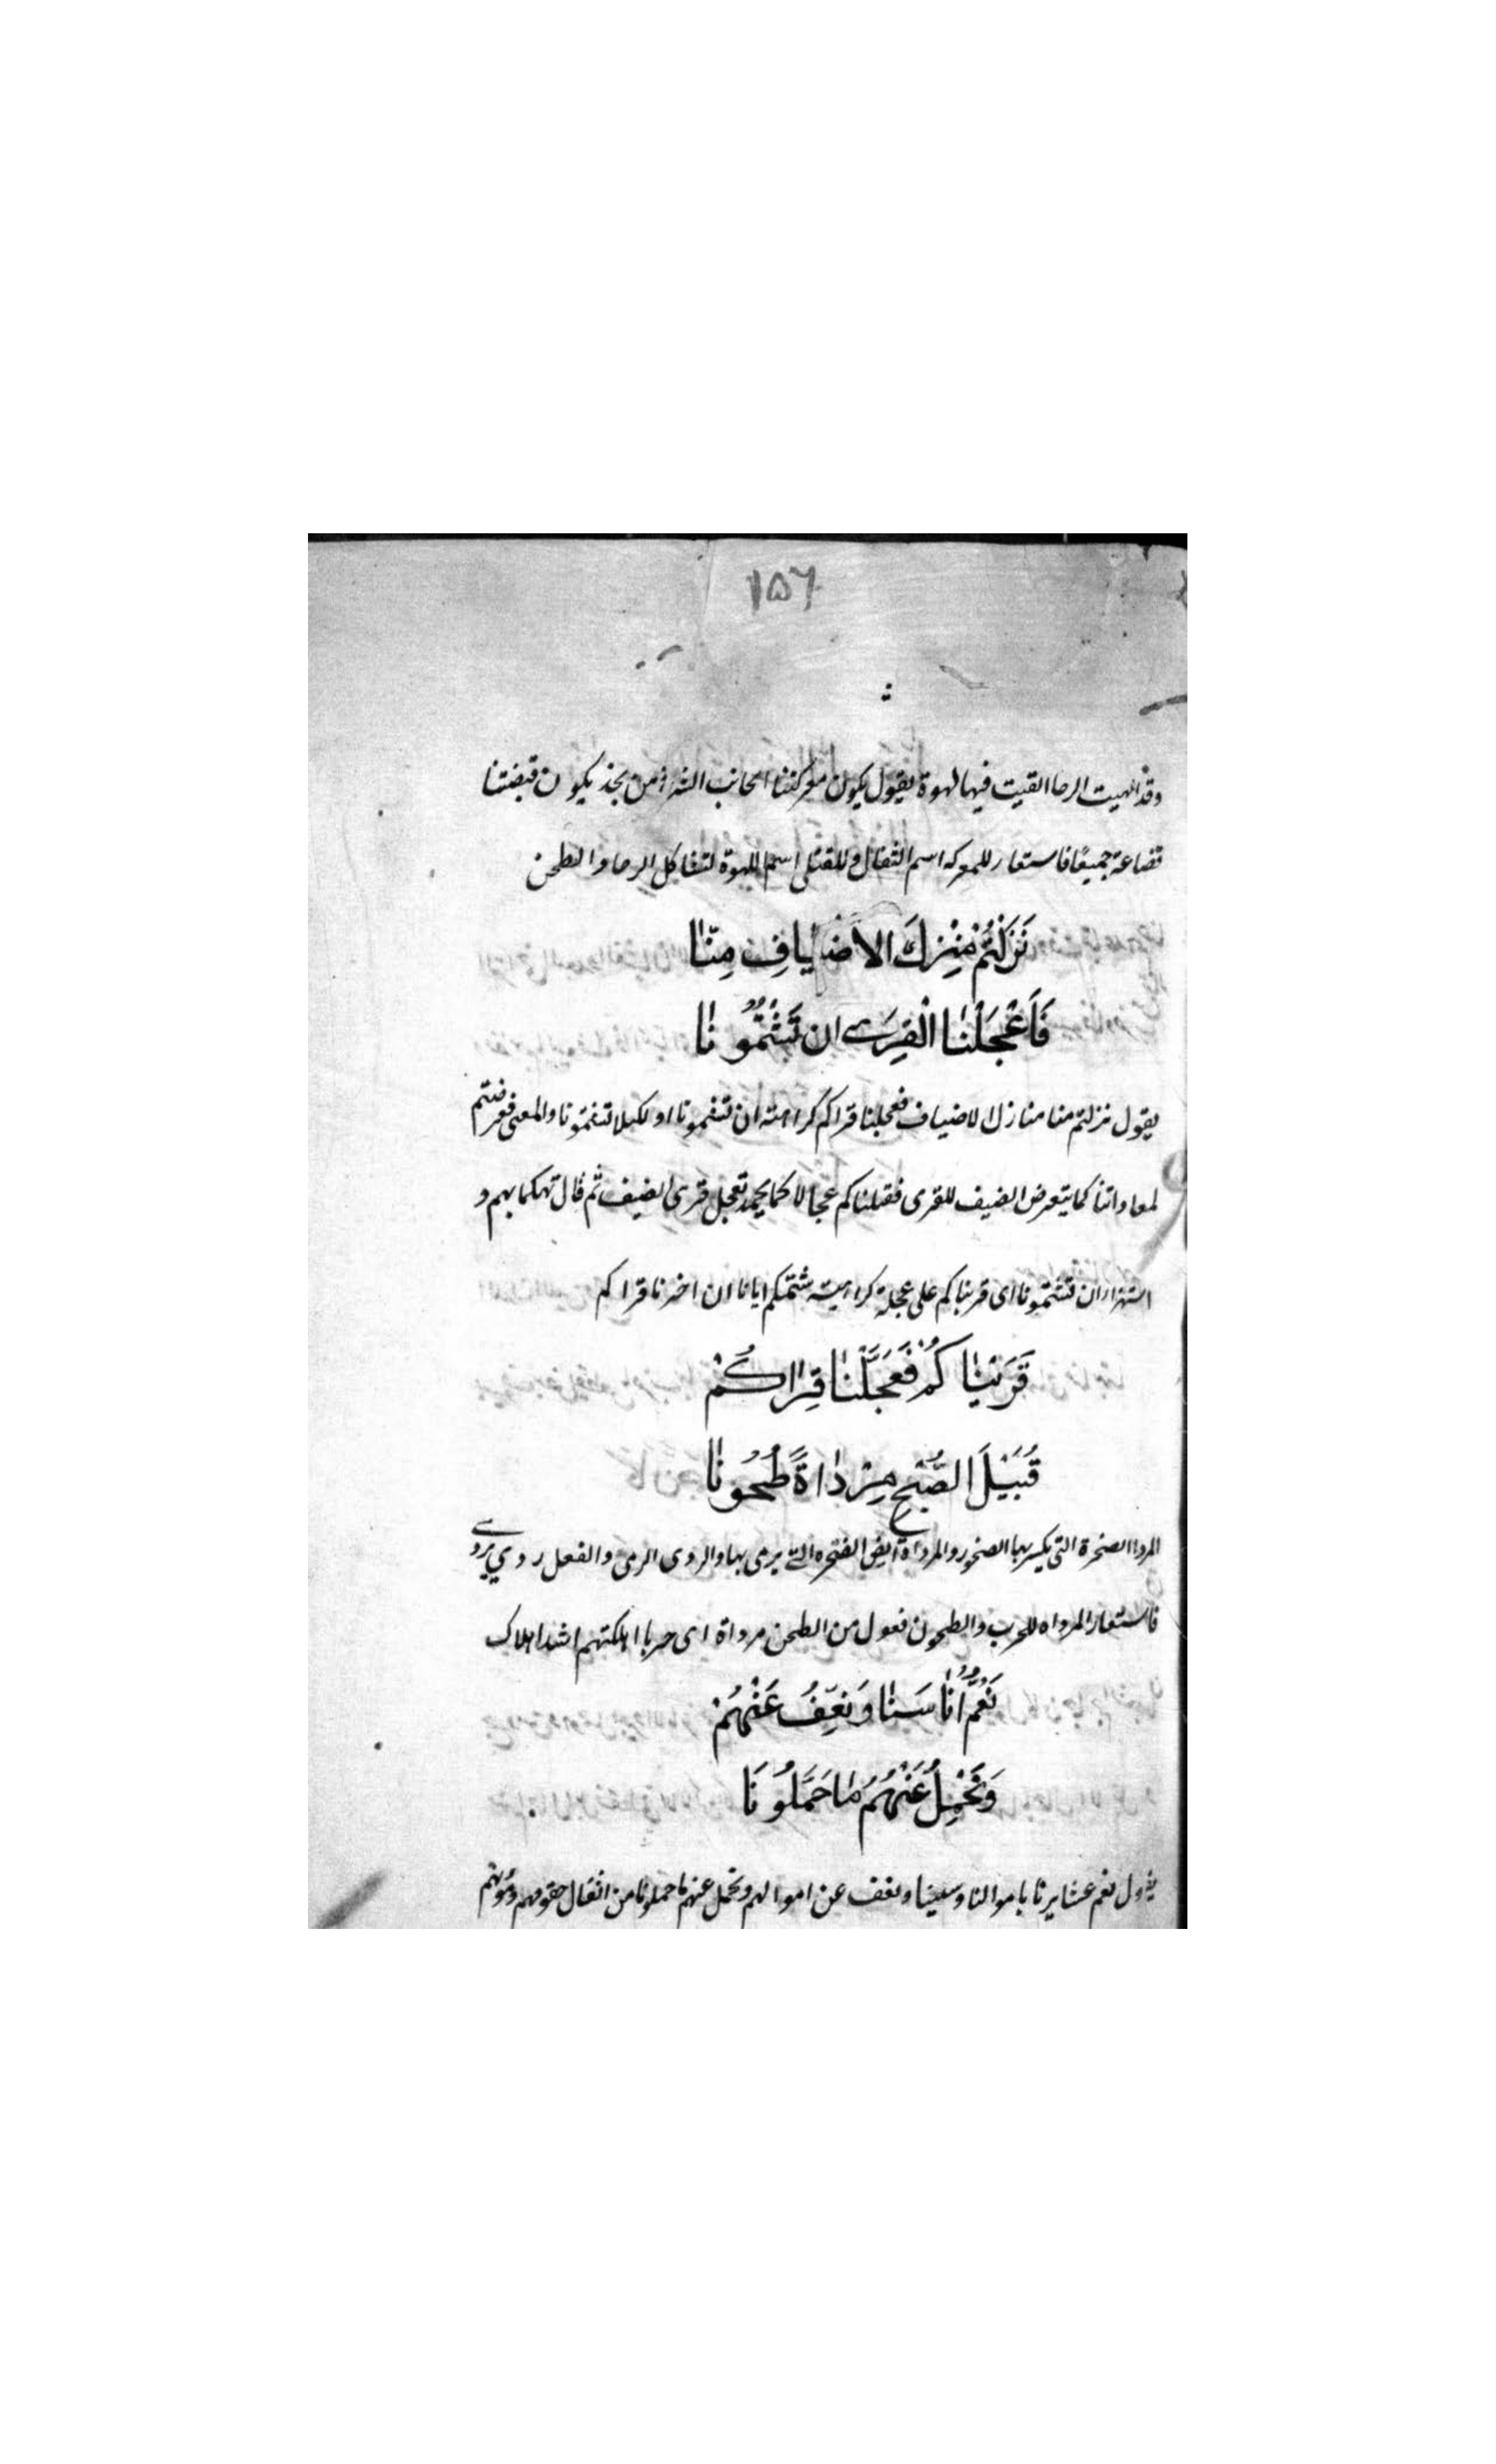 ١٥٦
وقد الهيت الرحا القيت فيها لهوة يقول يكون معركتنا الجانب الشرقي من نجد يكون قبضتنا
قضاعة جميعًا فاستعار للمعركه اسم الثفال وللقتلى اسم اللهوة لتشاكل الرحا والطحن
نَزَلْتُمْ مَنْزِلَ الاضيافِ مِنّا
فَاَعْجَلْنَا الْقِرَى ان تَشْتُمُونا
يقول نزلتم منا منازل الاضياف فعجلنا قراكم كراهته ان تشتمونا او لكيلا تشتمونا والمعنى فعرضتم
لمعاداتنا كما يتعرض الضيف للقرى فقتلناكم عجالا كما يحمد تعجل قرى الضيف ثم قال تهكما بهم و
استهزاء ان تشتمونا اى قريناكم على عجلة كراهيته شتمكم ايانا ان اخرنا قراكم
قَرَيْنَاكُمْ فَعَجَّلْنَا قِرَاكُمْ
قُبَيْلَ الصُّبْحِ مِرْدَاةً طَحُونَا
المردا الصخرة التى يكسر بها الصخور والمرداة ايض الصخره التے يرمى بها والردى الرمى والفعل ردي يردى
فاستعار المرداه للحرب والطحون فعول من الطحن مرداة اى حربا اهلكتهم اشد اهلاك
نَعُمُّ اُنَاسَنا وَنَعِفُّ عَنْهُمْ
وَنَحْمِلُ عَنْهُمُ مَا حَمَّلُونَا
يقول نعم عشايرنا باموالنا وسيبنا ونعف عن اموالهم ونحمل عنهم ما حملونا من اثقال حقوقهم ومؤنهم